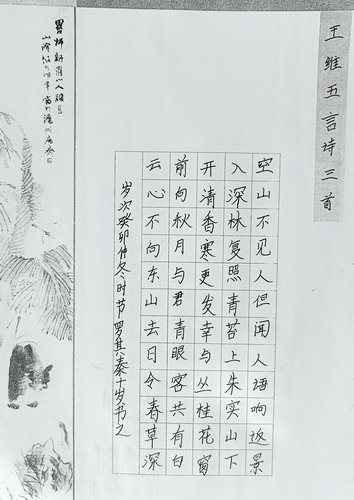 王维五言诗三首
空山不见人但闻人语响返景
入深林复照青苔上朱实山下
开清香寒更发幸与丛桂花窗
前向秋月与君青眼客共有白
云心不向东山去日令春草深
岁次癸卯仲冬时节罗其秦十岁书之
師新羅山人
山陰